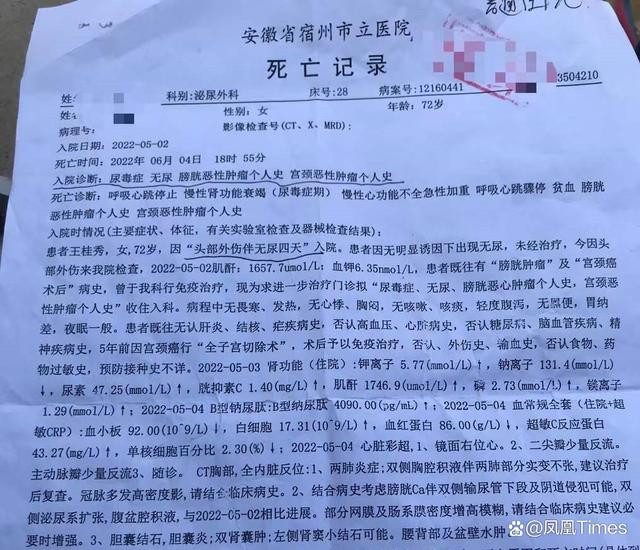 安徽省宿州市立医院
死亡记录
科别:泌尿外科 床号:28 病案号:12160441 3504210
姓名 性别: 女 年龄: 72岁
病理号: 影像检查号(CT、X、MRD):
入院日期: 2022-05-02
死亡时间: 2022年 06月 04日 18时 55分
入院诊断: 尿毒症 无尿 膀胱恶性肿瘤个人史 宫颈恶性肿瘤个人史
死亡诊断: 呼吸心跳停止 慢性肾功能衰竭(尿毒症期) 慢性心功能不全急性加重 呼吸心跳骤停 贫血 膀胱
恶性肿瘤个人史 宫颈恶性肿瘤个人史
入院时情况(主要症状、体征,有关实验室检查及器械检查结果):
患者王桂秀,女,72岁,因“头部外伤伴无尿四天”入院。患者因无明显诱因下出现无尿,未经治疗,今因头
部外伤来我院检查,2022-05-02肌酐: 1657.7umol/L;血钾6.35nmol/L,患者既往有“膀胱肿瘤”及“宫颈癌
术后”病史,曾于我科行免疫治疗,现为求进一步治疗门诊拟“尿毒症、无尿、膀胱恶心肿瘤个人史、宫颈恶
性肿瘤个人史”收住入科。病程中无畏寒、发热,无心悸、胸闷,无咳嗽、咳痰,轻度腹泻,无黑便,胃纳
差,夜眠一般。患者既往无认肝炎、结核、疟疾病史,否认高血压、心脏病史,否认糖尿病、脑血管疾病、精
神疾病史,5年前因宫颈癌行“全子宫切除术”,术后予以免疫治疗,否认、外伤史、输血史,否认食物、药
物过敏史,预防接种史不详。2022-05-03 肾功能(住院):钾离子 5.77(mmol/L)↑,钠离子 131.4(mmol/L)
↓,尿素 47.25(mmol/L)↑,胱抑素C 1.40(mg/L)↑,肌酐 1746.9(umol/L)↑,磷 2.73(mmol/L)↑,镁离子
1.29(mmol/L)↑;2022-05-04 B型钠尿肽:B型钠尿肽 4090.00(pg/mL)↑;2022-05-04 血常规全套(住院+超
敏CRP):血小板 92.00(10^9/L)↓,白细胞 17.31(10^9/L)↑,血红蛋白 86.00(g/L)↓,超敏C反应蛋白
43.27(mg/L)↑,单核细胞百分比 2.30(%)↓;2022-05-04 心脏彩超,1、镜面右位心。2、二尖瓣少量反流。
主动脉瓣少量反流3、随诊。 CT胸部,全内脏反位:1、两肺炎症;双侧胸腔积液伴两肺部分实变不张,建议治疗
后复查。冠脉多发高密度影,请结合临床病史。2、结合病史考虑膀胱Ca伴双侧输尿管下段及阴道侵犯可能,双
侧泌尿系扩张,腹盆腔积液,与2022-05-02相比进展。部分网膜及肠系膜密度增高模糊,请结合临床病史建议必
要时增强。3、胆囊结石,胆囊炎;双肾囊肿;左侧肾窦小结石可能。腰背部及盆壁水肿
@凤凰Times